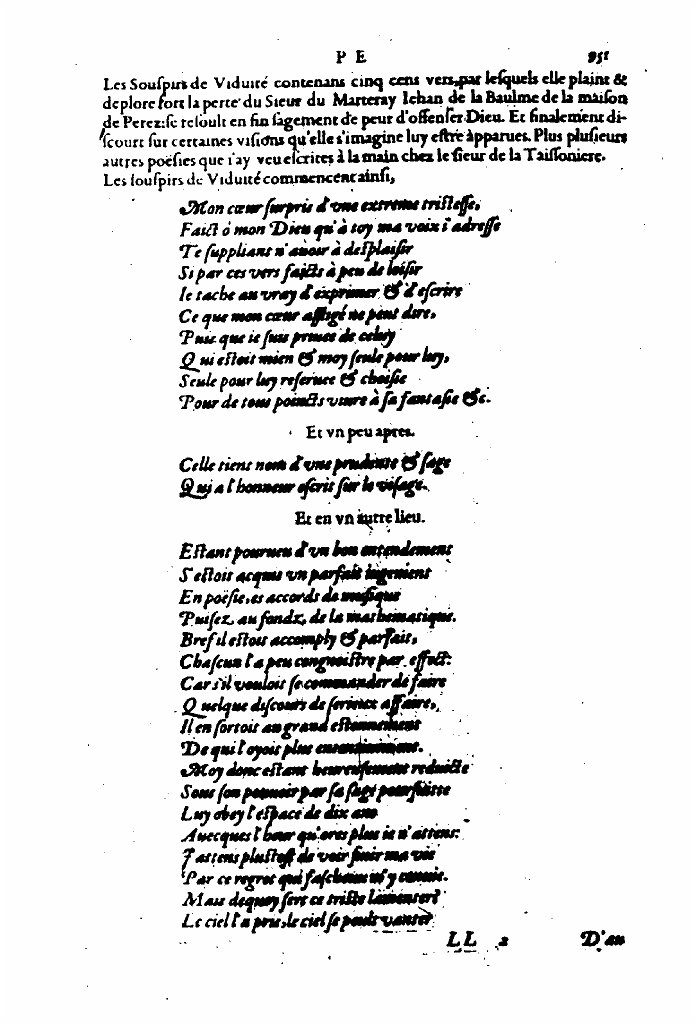 P E 951
Les Souſpirs de Viduité contenans cinq cens vers, par leſquels elle plaint &
deplore fort la perte du Sieur du Marteray Iehan de la Baulme de la maiſon
de Perez: ſe reſoult en fin ſagement de peur d'offenſer Dieu. Et finalement di-
ſcourt ſur certaines viſions qu'elle s'imagine luy eſtre apparues. Plus pluſieurs
autres poëſies que i'ay veu eſcrites à la main chez le ſieur de la Taiſſoniere.
Les ſouſpirs de Viduité commencent ainſi,
Mon cœur ſurpris d'vne extreme triſteſſe,
Faict ô mon Dieu qu'à toy ma voix i'adreſſe
Te ſuppliant n'auoir à deſplaiſir
Si par ces vers faicts à peu de loiſir
Ie tache au vray d'exprimer & d'eſcrire
Ce que mon cœur affligé ne peut dire,
Puis que ie ſuis priuee de celuy
Qui eſtoit mien & moy ſeule pour luy,
Seule pour luy reſeruee & choiſie
Pour de tous poincts viure à ſa fantaſie &c.
Et vn peu apres.
Celle tiens nom d'vne prudente & ſage
Qui a l'honneur eſcrit ſur le viſage.
Et en vn autre lieu.
Eſtant pourueu d'vn bon entendement
S'eſtoit acquis vn parfait iugement
En poëſie, es accords de muſique
Puiſez au fondz de la mathematique.
Bref il eſtoit accomply & parfait,
Chaſcun l'a peu congnoiſtre par effect:
Car s'il vouloit ſe commander de faire
Quelque diſcours de ſerieux affaire,
Il en ſortoit au grand eſtonnement
De qui l'oyoit plus ententiuement.
Moy donc eſtant heureuſement reduicte
Sous ſon pouuoir par ſa ſage pourſuitte
Luy obey l'eſpace de dix ans
Auecques l'heur qu'ores plus ie n'attens:
I'attens pluſtoſt de voir finir ma vie
Par ce regret qui faſcheux m'y conuie.
Mais dequoy ſert ce triſte lamenter?
Le ciel l'a pris, le ciel ſe peult vanter
LL 2 D'au